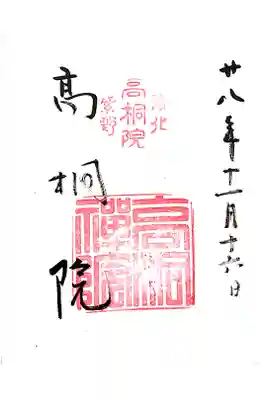 廿八年十一月十六日
洛北
高桐院
紫野
高桐
禪院
髙桐院